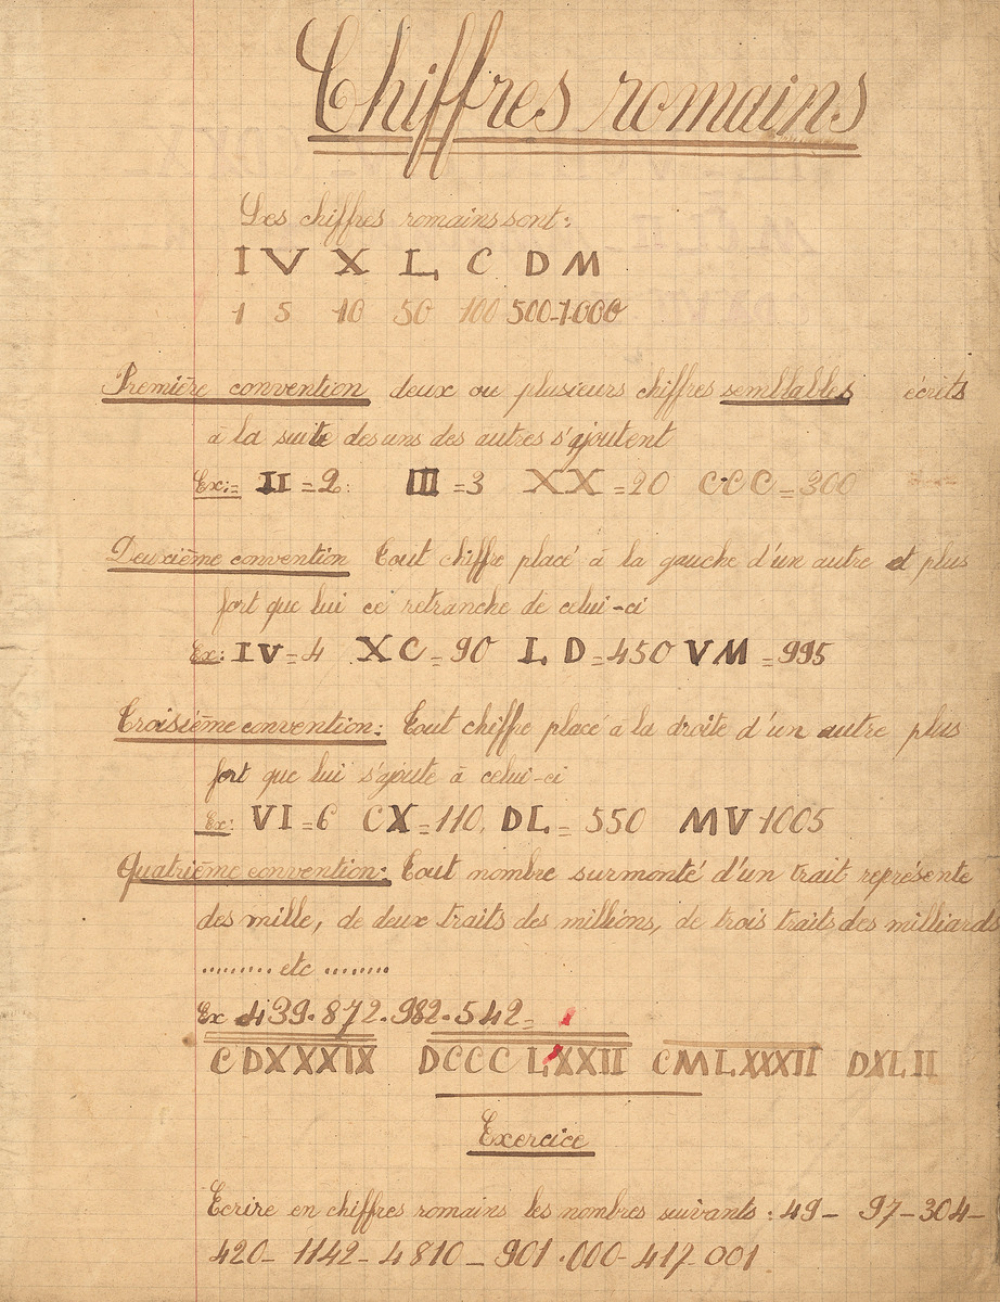 Chiffres romains
Les chiffres romains sont:
I V X L C D M
1 5 10 50 100 500-1.000
Première convention deux ou plusieurs chiffres semblables écrits
à la suite des uns des autres s'ajoutent
Ex:= II = 2. III = 3 XX = 20 CCC = 300
Deuxième convention Tout chiffre placé à la gauche d'un autre et plus
fort que lui ce retranche de celui-ci
Ex: IV = 4 XC = 90 LD = 450 VM = 995
Troisième convention: Tout chiffre placé à la droite d'un autre plus
fort que lui s'ajoute à celui-ci
Ex: VI = 6 CX = 110. DL = 550 MV-1005
Quatrième convention: Tout nombre surmonté d'un trait représente
des mille, de deux traits des millions, de trois traits des milliards
......... etc ........
Ex 439.872.982.542=
CDXXXIX DCCCLXXII CMLXXXII DXLII
Exercice
Ecrire en chiffres romains les nombres suivants: 49- 97-304-
420- 1142- 4810 - 901.000- 417.001